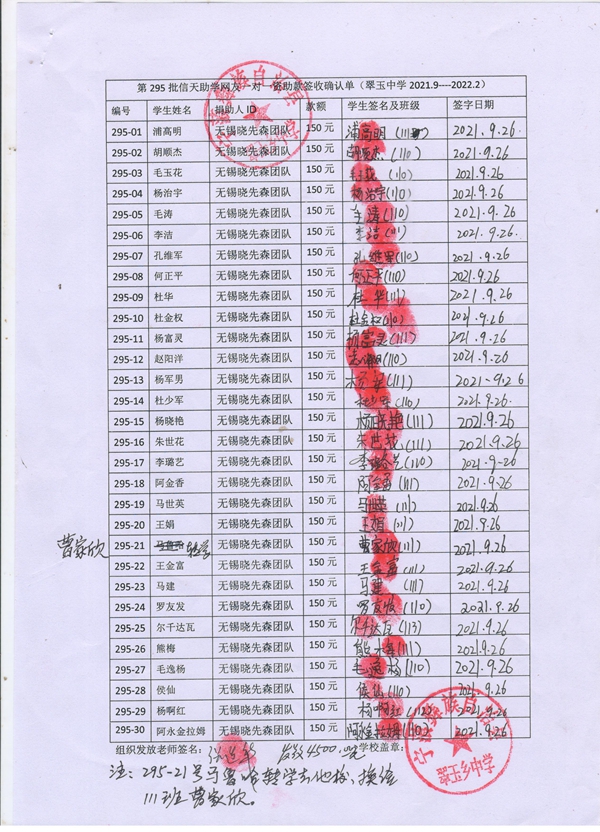 第 295 批信天助学网友一对一资助款签收确认单（翠玉中学 2021.9----2022.2）
编号 学生姓名 捐助人 ID 款额 学生签名及班级 签字日期
295-01 浦高明 无锡晓先森团队 150 元 浦高明 2021.9.26
295-02 胡顺杰 无锡晓先森团队 150 元 胡顺杰 (110) 2021.9.26
295-03 毛玉花 无锡晓先森团队 150 元 毛玉花 (110) 2021.9.26
295-04 杨治宇 无锡晓先森团队 150 元 杨治宇 (110) 2021.9.26
295-05 毛涛 无锡晓先森团队 150 元 (110) 2021.9.26
295-06 李洁 无锡晓先森团队 150 元 李洁 (111) 2021.9.26
295-07 孔维军 无锡晓先森团队 150 元 孔维军 (110) 2021.9.26
295-08 何正平 无锡晓先森团队 150 元 何正平 (110) 2021.9.26
295-09 杜华 无锡晓先森团队 150 元 杜华 (111) 2021.9.26
295-10 杜金权 无锡晓先森团队 150 元 杜金权 (110) 2021.9.26
295-11 杨富灵 无锡晓先森团队 150 元 杨富灵 (111) 2021.9.26
295-12 赵阳洋 无锡晓先森团队 150 元 (110) 2021.9.26
295-13 杨军男 无锡晓先森团队 150 元 杨军 (111) 2021-9.26
295-14 杜少军 无锡晓先森团队 150 元 杜少军 (110) 2021.9.26
295-15 杨晓艳 无锡晓先森团队 150 元 杨晓艳 (111) 2021.9.26
295-16 朱世花 无锡晓先森团队 150 元 朱世花 (111) 2021.9.26
295-17 李璐艺 无锡晓先森团队 150 元 李璐艺 (110) 2021.9-26
295-18 阿金香 无锡晓先森团队 150 元 阿金香 (111) 2021.9.26
295-19 马世英 无锡晓先森团队 150 元 马世英 (111) 2021.9.26
295-20 王娟 无锡晓先森团队 150 元 王娟 (111) 2021.9.26
曹家欣 295-21 转学 无锡晓先森团队 150 元 曹家欣 (111) 2021.9.26
295-22 王金富 无锡晓先森团队 150 元 王金富 (111) 2021.9.26
295-23 马建 无锡晓先森团队 150 元 马建 (111) 2021.9.26
295-24 罗友发 无锡晓先森团队 150 元 罗友发 (110) 2021.9.26
295-25 尔千达瓦 无锡晓先森团队 150 元 尔千达瓦 (113) 2021.9.26
295-26 熊梅 无锡晓先森团队 150 元 熊梅 (111) 2021.9.26
295-27 毛逸杨 无锡晓先森团队 150 元 毛逸杨 (110) 2021.9.26
295-28 侯仙 无锡晓先森团队 150 元 侯仙 (110) 2021.9.26
295-29 杨啊红 无锡晓先森团队 150 元 杨啊红 (112) 2021.9.26
295-30 阿永金拉姆 无锡晓先森团队 150 元 (110) 2021.9.26
组织发放老师签名： 发放4500.元 学校盖章：
注：295-21号马鲁哈转学去他校，换给
111班曹家欣。
翠玉乡中学